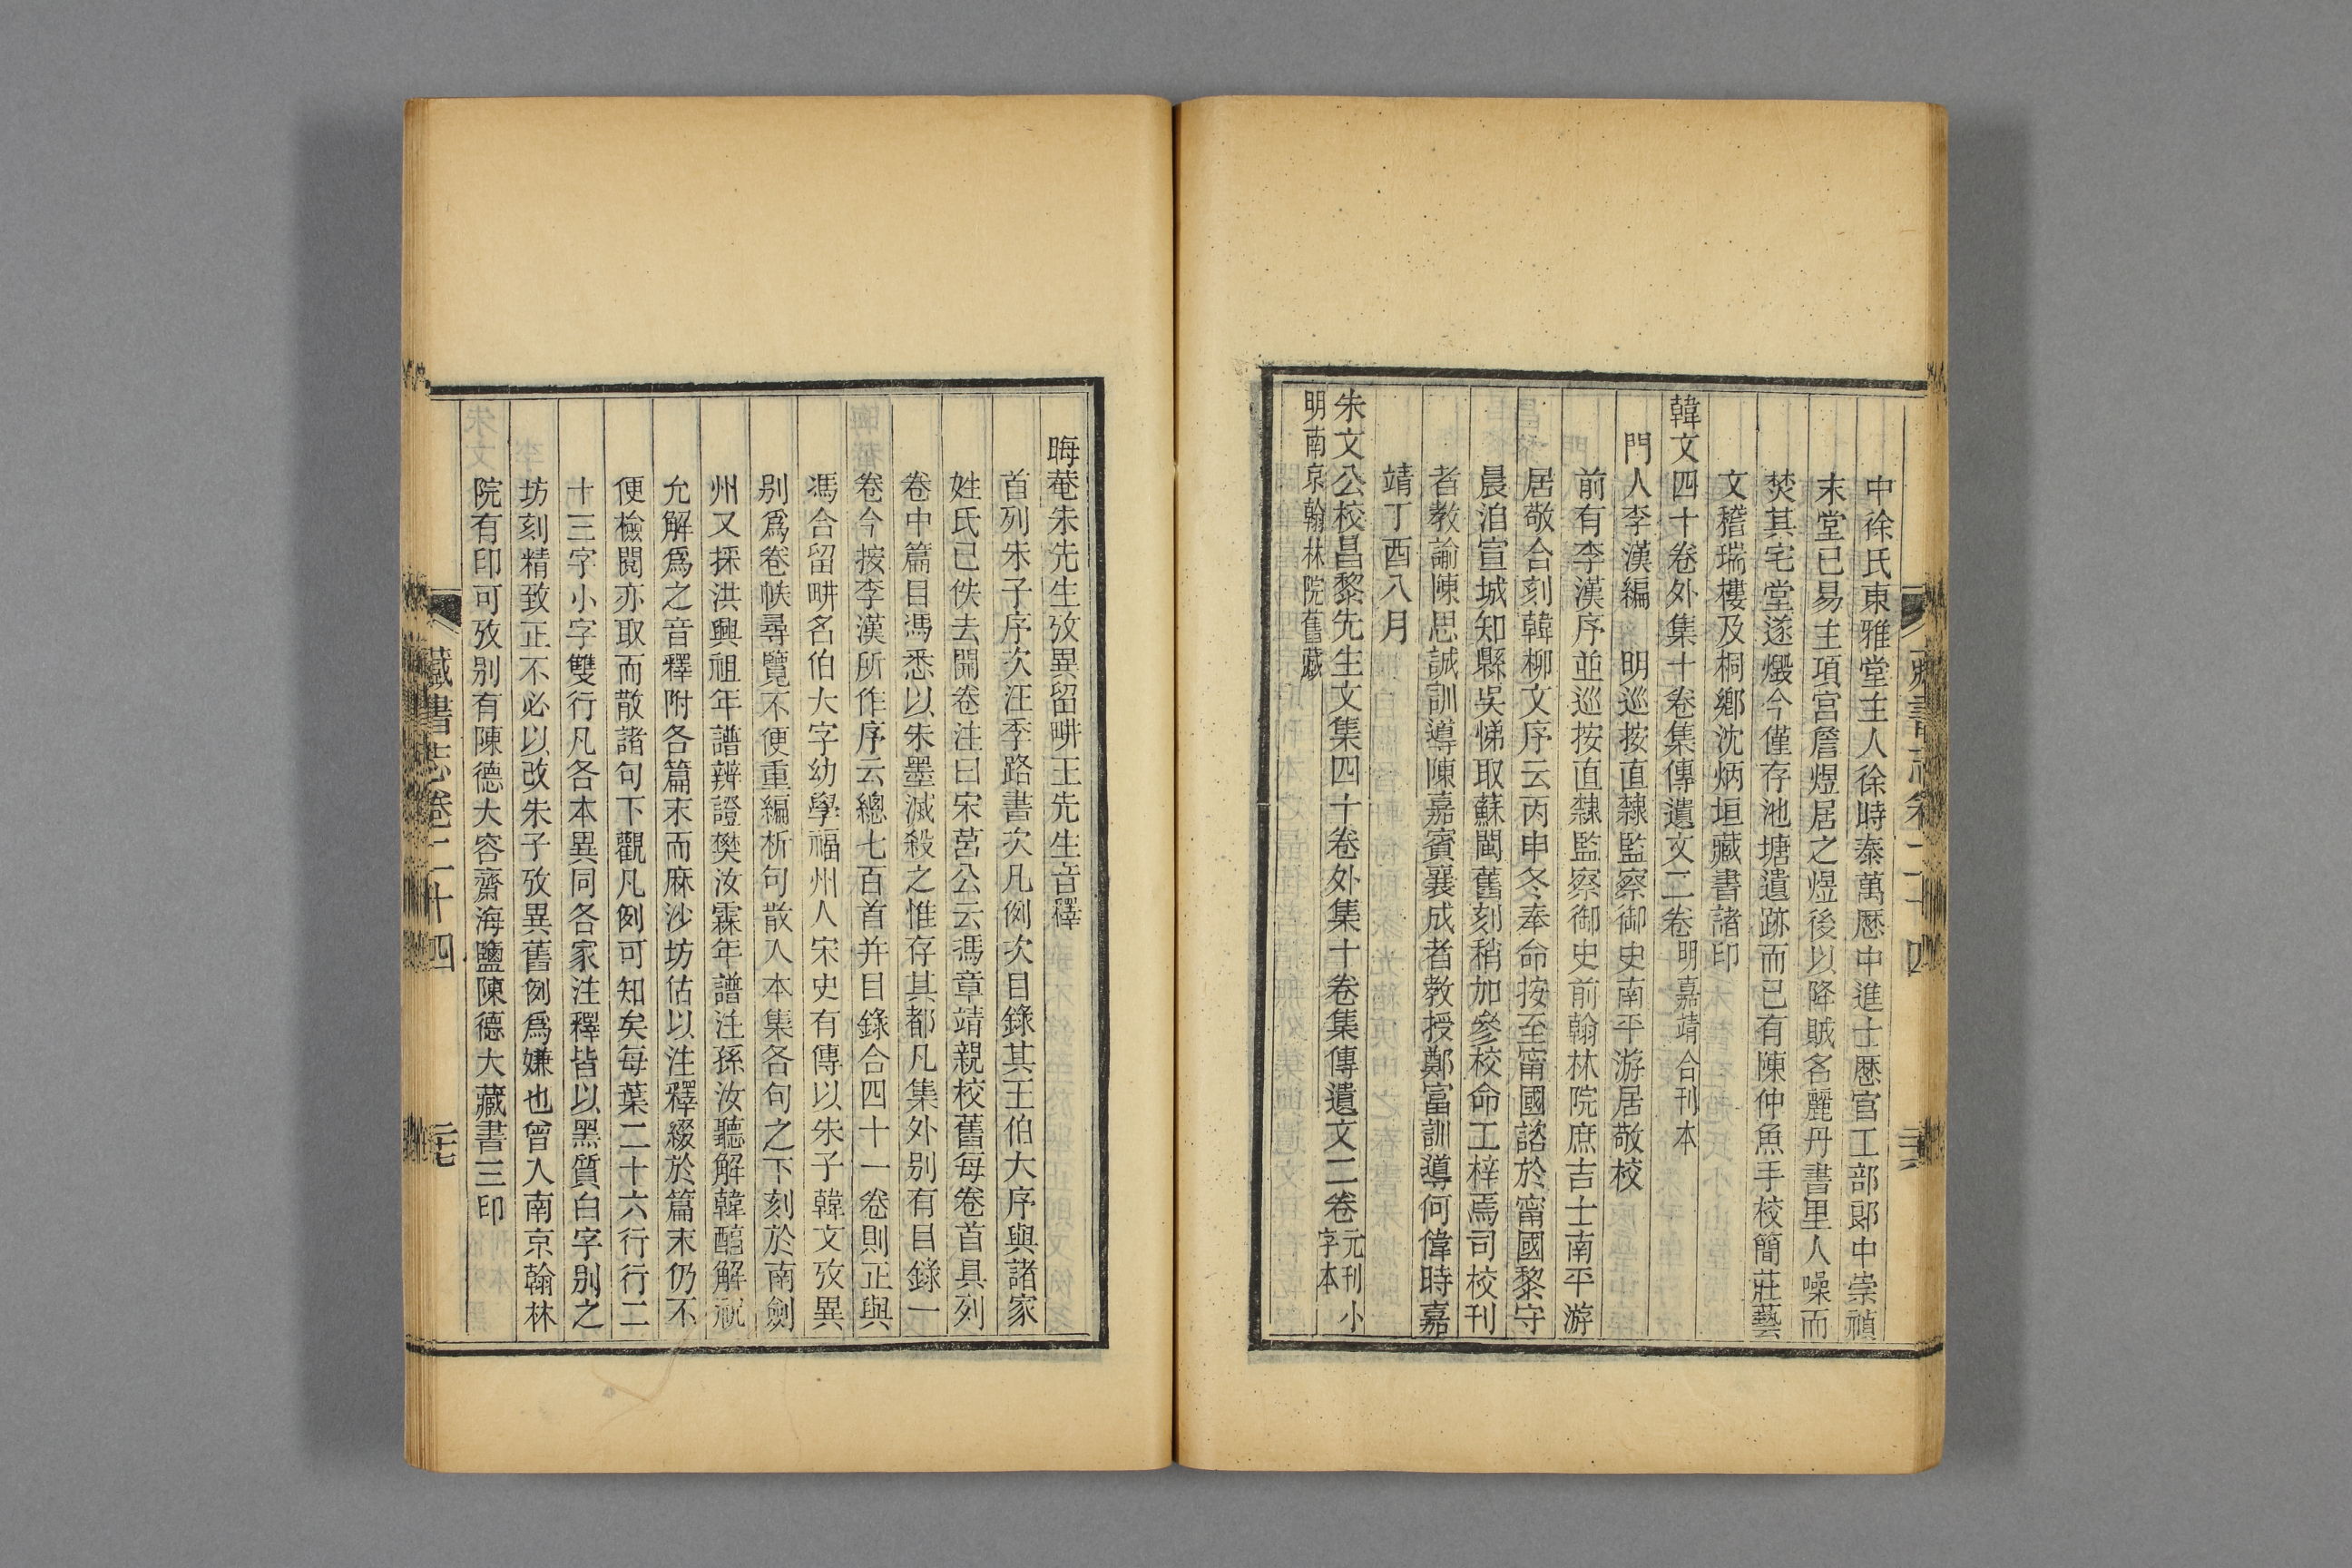 中徐氏東雅堂主人徐時泰萬歷中進士歷官工部郎中崇禎
末堂已易主項宮詹煜居之煜後以降賊名麗丹書里人噪而
焚其宅堂遂燬今僅存池塘遺跡而已有陳仲魚手校簡莊藝
文稽瑞樓及桐鄉沈炳垣藏書諸印
韓文四十卷外集十卷集傳遺文二卷明嘉靖合刊本
門人李漢編 明巡按直隸監察御史南平游居敬校
前有李漢序並巡按直隸監察御史前翰林院庶吉士南平游
居敬合刻韓柳文序云丙申冬奉命按至甯國諮於甯國黎守
晨洎宣城知縣吳悌取蘇閩舊刻稍加參校命工梓焉司校刊
者教諭陳思誠訓導陳嘉賓襄成者教授鄭富訓導何偉時嘉
靖丁酉八月
朱文公校昌黎先生文集四十卷外集十卷集傳遺文二卷元刊小字本
明南京翰林院舊藏
藏書志卷二十四
三六
晦菴朱先生攷異留畊王先生音釋
首列朱子序次汪季路書次凡例次目錄其王伯大序與諸家
姓氏已佚去開卷注曰宋莒公云馮章靖親校舊每卷首具列
卷中篇目馮悉以朱墨滅殺之惟存其都凡集外別有目錄一
卷今按李漢所作序云總七百首并目錄合四十一卷則正與
馮合留畊名伯大字幼學福州人宋史有傳以朱子韓文攷異
別爲卷帙尋覽不便重編析句散入本集各句之下刻於南劍
州又採洪興祖年譜辨證樊汝霖年譜注孫汝聽解韓醇解祝
允解爲之音釋附各篇末而麻沙坊估以注釋綴於篇末仍不
便檢閱亦取而散諸句下觀凡例可知矣每葉二十六行行二
十三字小字雙行凡各本異同各家注釋皆以黑質白字別之
坊刻精致正不必以改朱子攷異舊例爲嫌也曾入南京翰林
院有印可攷別有陳德大容齋海鹽陳德大藏書三印
藏書志卷二十四
三七